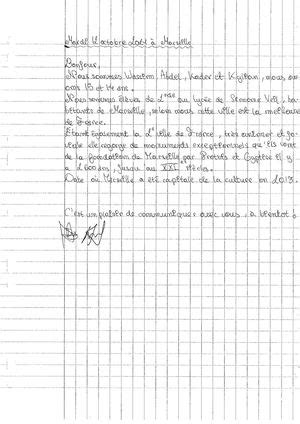 Mardi 12 octobre 2021 à Marseille
Bonjour,
Nous sommes Wassim, Abdel, Kader et Kylian, nous av
ons 15 et 14 ans.
Nous sommes élèves de 2nde au lycée de Simone Veil, ha
bitants de Marseille, selon nous cette ville est la meilleure
de France.
Etant également la 2e ville de France, très ancienne et
elle regorge de monuments exceptionnels qu'ils vont
de la fondation de Marseille par Protis et Gyptis il y
a 2600 ans, jusqu'au XXIe siècle.
Date où Marseille a été capitale de la culture en 2013.
C'est un plaisir de communiquer avec vous, à bientôt